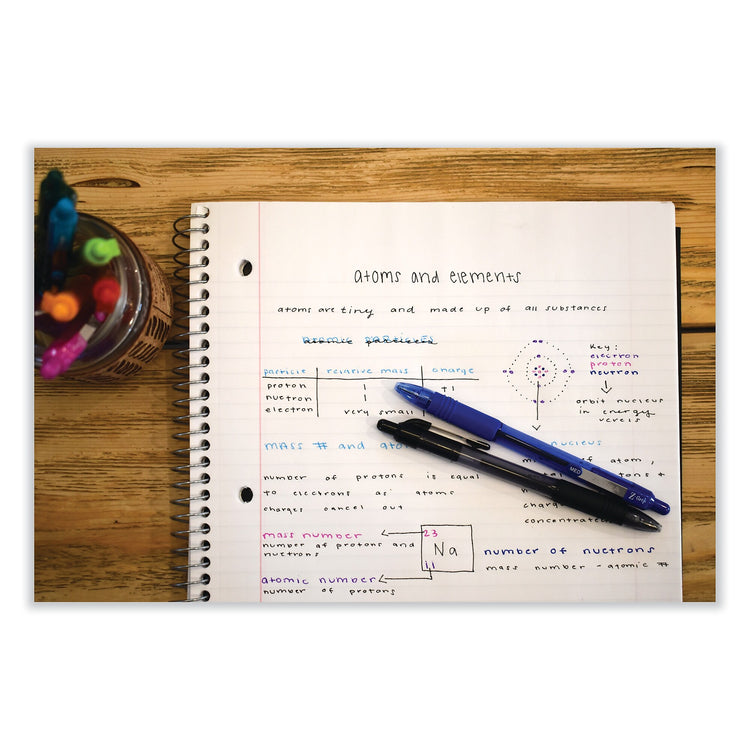 atoms and elements
atoms are tiny and made up of all substances
particle relative mass charge
proton 1 +1
nuetron 1
electron very small
Key:
electron
proton
neutron
orbit nucleus
in energy
verels
mass # and
nucleus
of atom,
number of protons is equal
to electrons as atoms
charges cancel out
concentrated
mass number
number of protons and
nuetrons
23
Na
11
atomic number
number of protons
number of nuetrons
mass number - atomic #
MED
Z-Grip